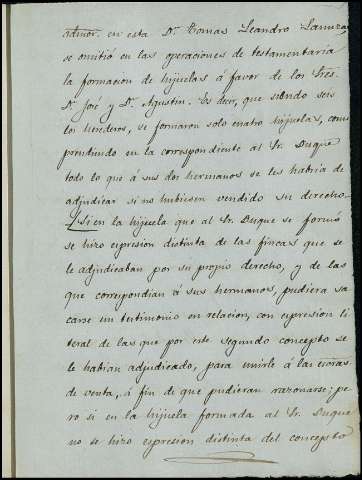 admor. en esta Dn. Tomas Leandro Lanuza,
se omitió en las operaciones de testamentaría
la formacion de hijuelas á favor de los Sres.
Dn. José y Dn. Agustin. Es decir, que siendo seis
los herederos, se formaron solo cuatro hijuelas, com-
prendiendo en la correspondiente al Sr. Duque
todo lo que á sus dos hermanos se les habria de
adjudicar si no hubiesen vendido su derecho.
Si en la hijuela que al Sr. Duque se formó
se hizo espresion distinta de las fincas que se
le adjudicaban por su propio derecho, y de las
que correspondian á sus hermanos, pudiera sa-
carse un testimonio en relacion, con espresion li-
teral de las que por este segundo concepto se
le habian adjudicado, para unirle á las escras
de venta, á fin de que pudieran razonarse; pe-
ro si en la hijuela formada al Sr. Duque
no se hizo espresion distinta del concepto